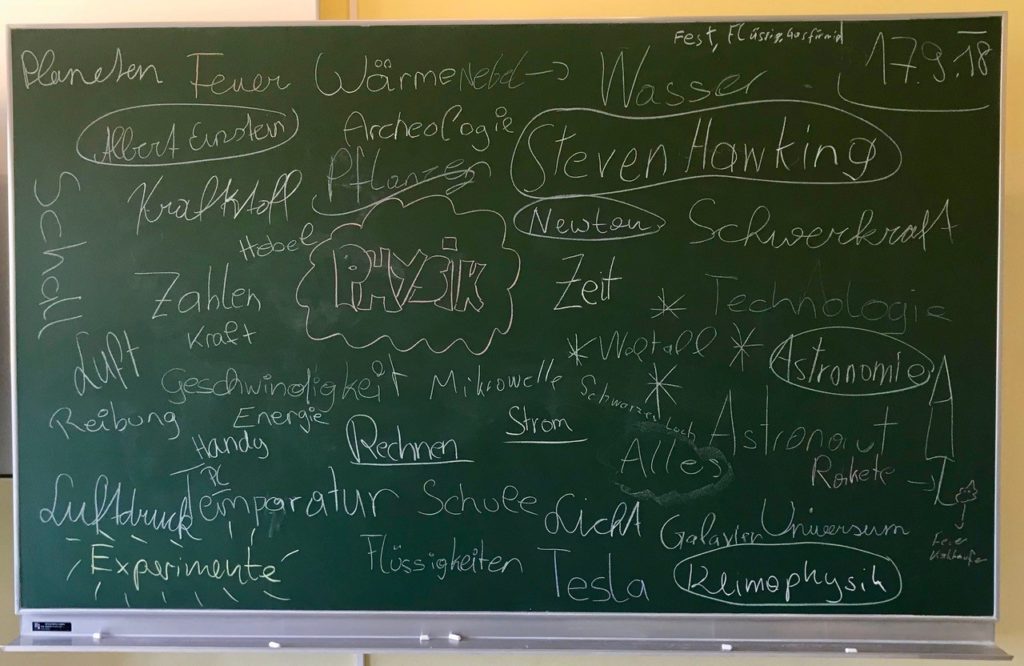 Fest, Flüssig, Gasförmig
Planeten Feuer Wärme Nebel → Wasser 17.9.18
Albert Einstein Archeologie Steven Hawking
Schall
Kraftstoff Pflanzen
Newton Schwerkraft
Hebel PHYSIK
Zahlen Zeit Technologie
Kraft
Luft Weltall Astronomie
Geschwindigkeit Mikrowelle Schwarzes Loch
Reibung Energie Strom Astronaut
Handy Rechnen Alles Rakete
PC
Luftdruck Temparatur Schule Licht Galaxien Universum
Feuer
Experimente Flüssigkeiten Tesla Klimaphysik